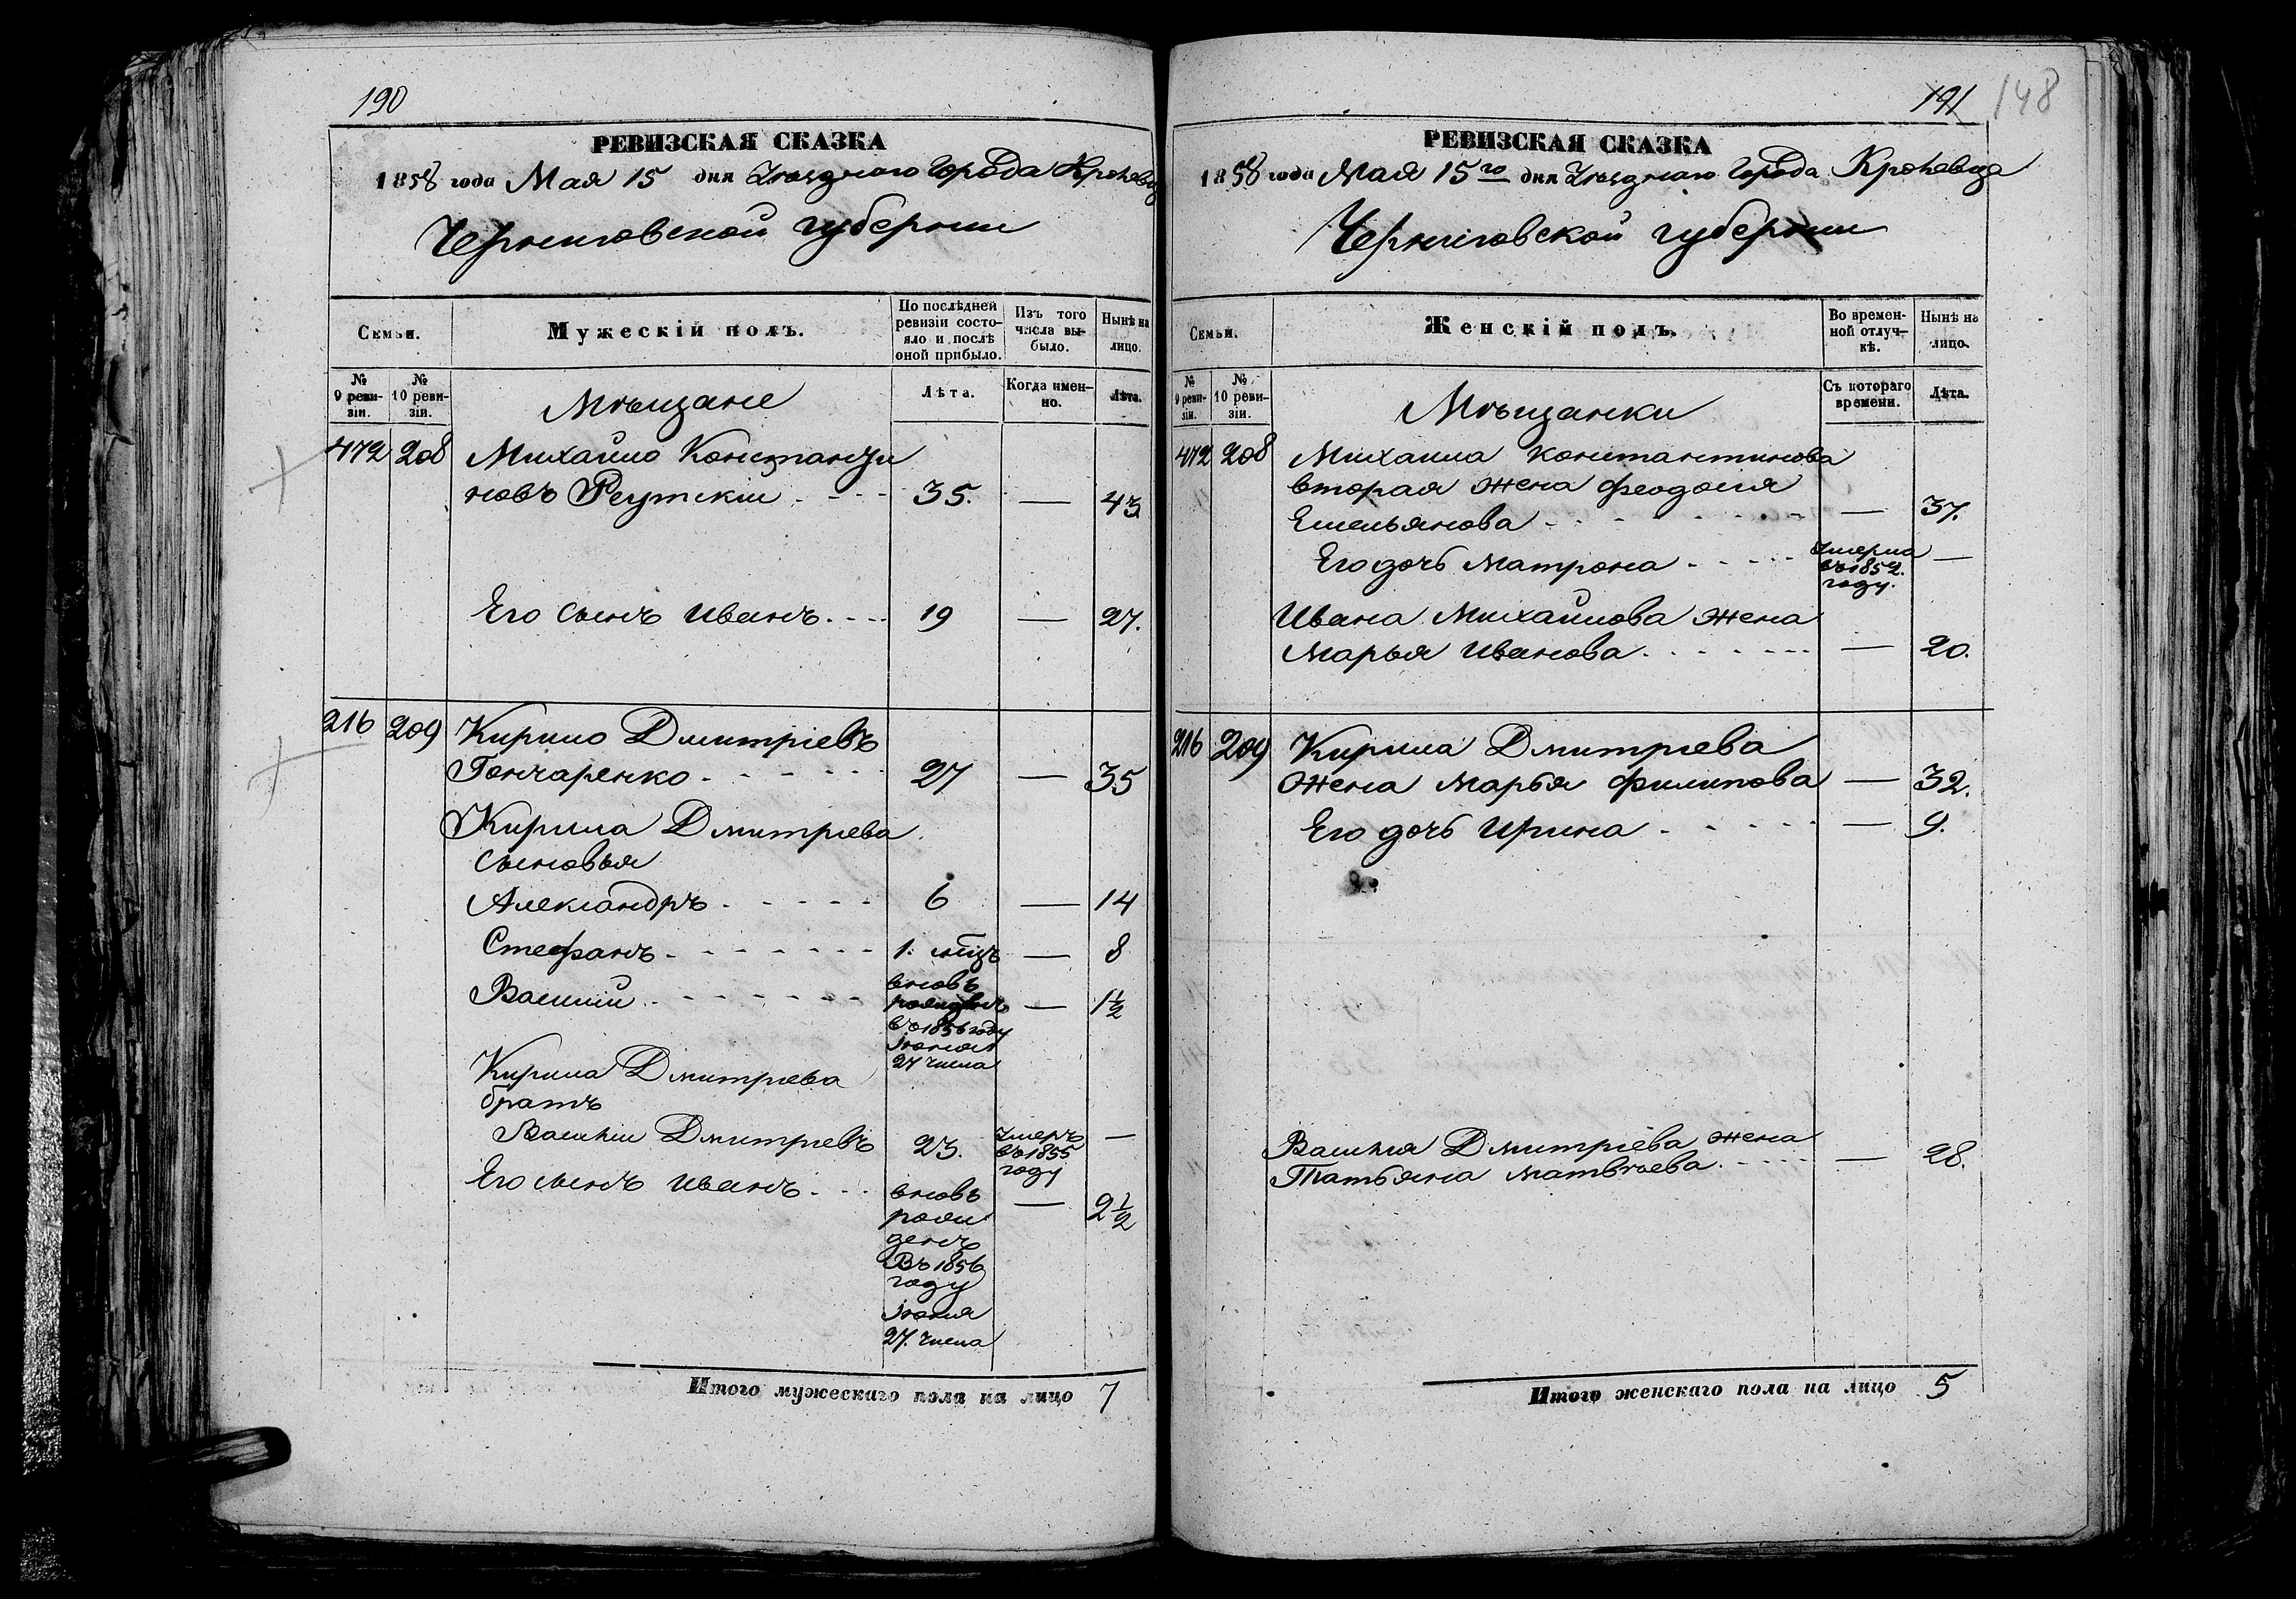 190
РЕВИЗСКАЯ СКАЗКА
1858 года Мая 15 дня Уѣзднаго Города Кролевца
Черниговской губерніи
Семьи.
Мужескій полъ.
По послѣдней ревизіи состояло и послѣ оной прибыло.
Изъ того числа выбыло.
Нынѣ на лицо.
№ 9 ревизіи.
№ 10 ревизіи.
Мѣщане
Лѣта.
Когда именно.
Лѣта.
472 208 Михайло Константи
новъ Реутскій - - - 35. — 43
Его сынъ Иванъ. - - - 19 — 27.
216 209 Кирило Дмитріевъ
Гончаренко - - - - - 27 — 35
Кирила Дмитріева
сыновья
Александръ - - - - - 6 — 14
Стефанъ - - - - - - - 1. мѣц — 8
Василій - - - - - - - вновь — 1½
рожденъ
въ 1856 году
Іюня
27 числа
Кирила Дмитріева
братъ
Василій Дмитріевъ 23. Умеръ —
въ 1855
году
Его сынъ Иванъ - - - вновь — 2½
рож
денъ
Въ 1856
году
Іюня
27. числа
Итого мужескаго пола на лицо 7
191 148
РЕВИЗСКАЯ СКАЗКА
1858 года Мая 15го дня Уѣзднаго Города Кролевца
Черниговской губерніи
Семьи.
Женскій полъ.
Во временной отлучкѣ.
Нынѣ на лицо.
№ 9 ревизіи.
№ 10 ревизіи.
Мѣщанки
Съ котораго времени.
Лѣта.
472 208 Михаила Константинова
вторая жена Феодосія
Емельянова - - - - - - - — 37.
Его дочь Матрона - - - - - Умерла —
въ 1852.
году.
Ивана Михайлова жена
Марья Иванова - - - - - - — 20.
216 209 Кирила Дмитріева
жена Марья Филипова — 32.
Его дочь Ирина - - - - - — 9.
Василія Дмитріева жена
Татьяна Матвѣева - - - - — 28.
Итого женскаго пола на лицо 5